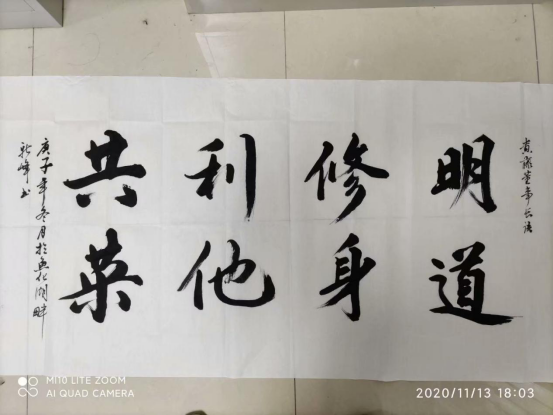 明道
修身
利他
共荣
庚子年冬月于兴化湖畔
MI10 LITE ZOOM
AI QUAD CAMERA
2020/11/13 18:03